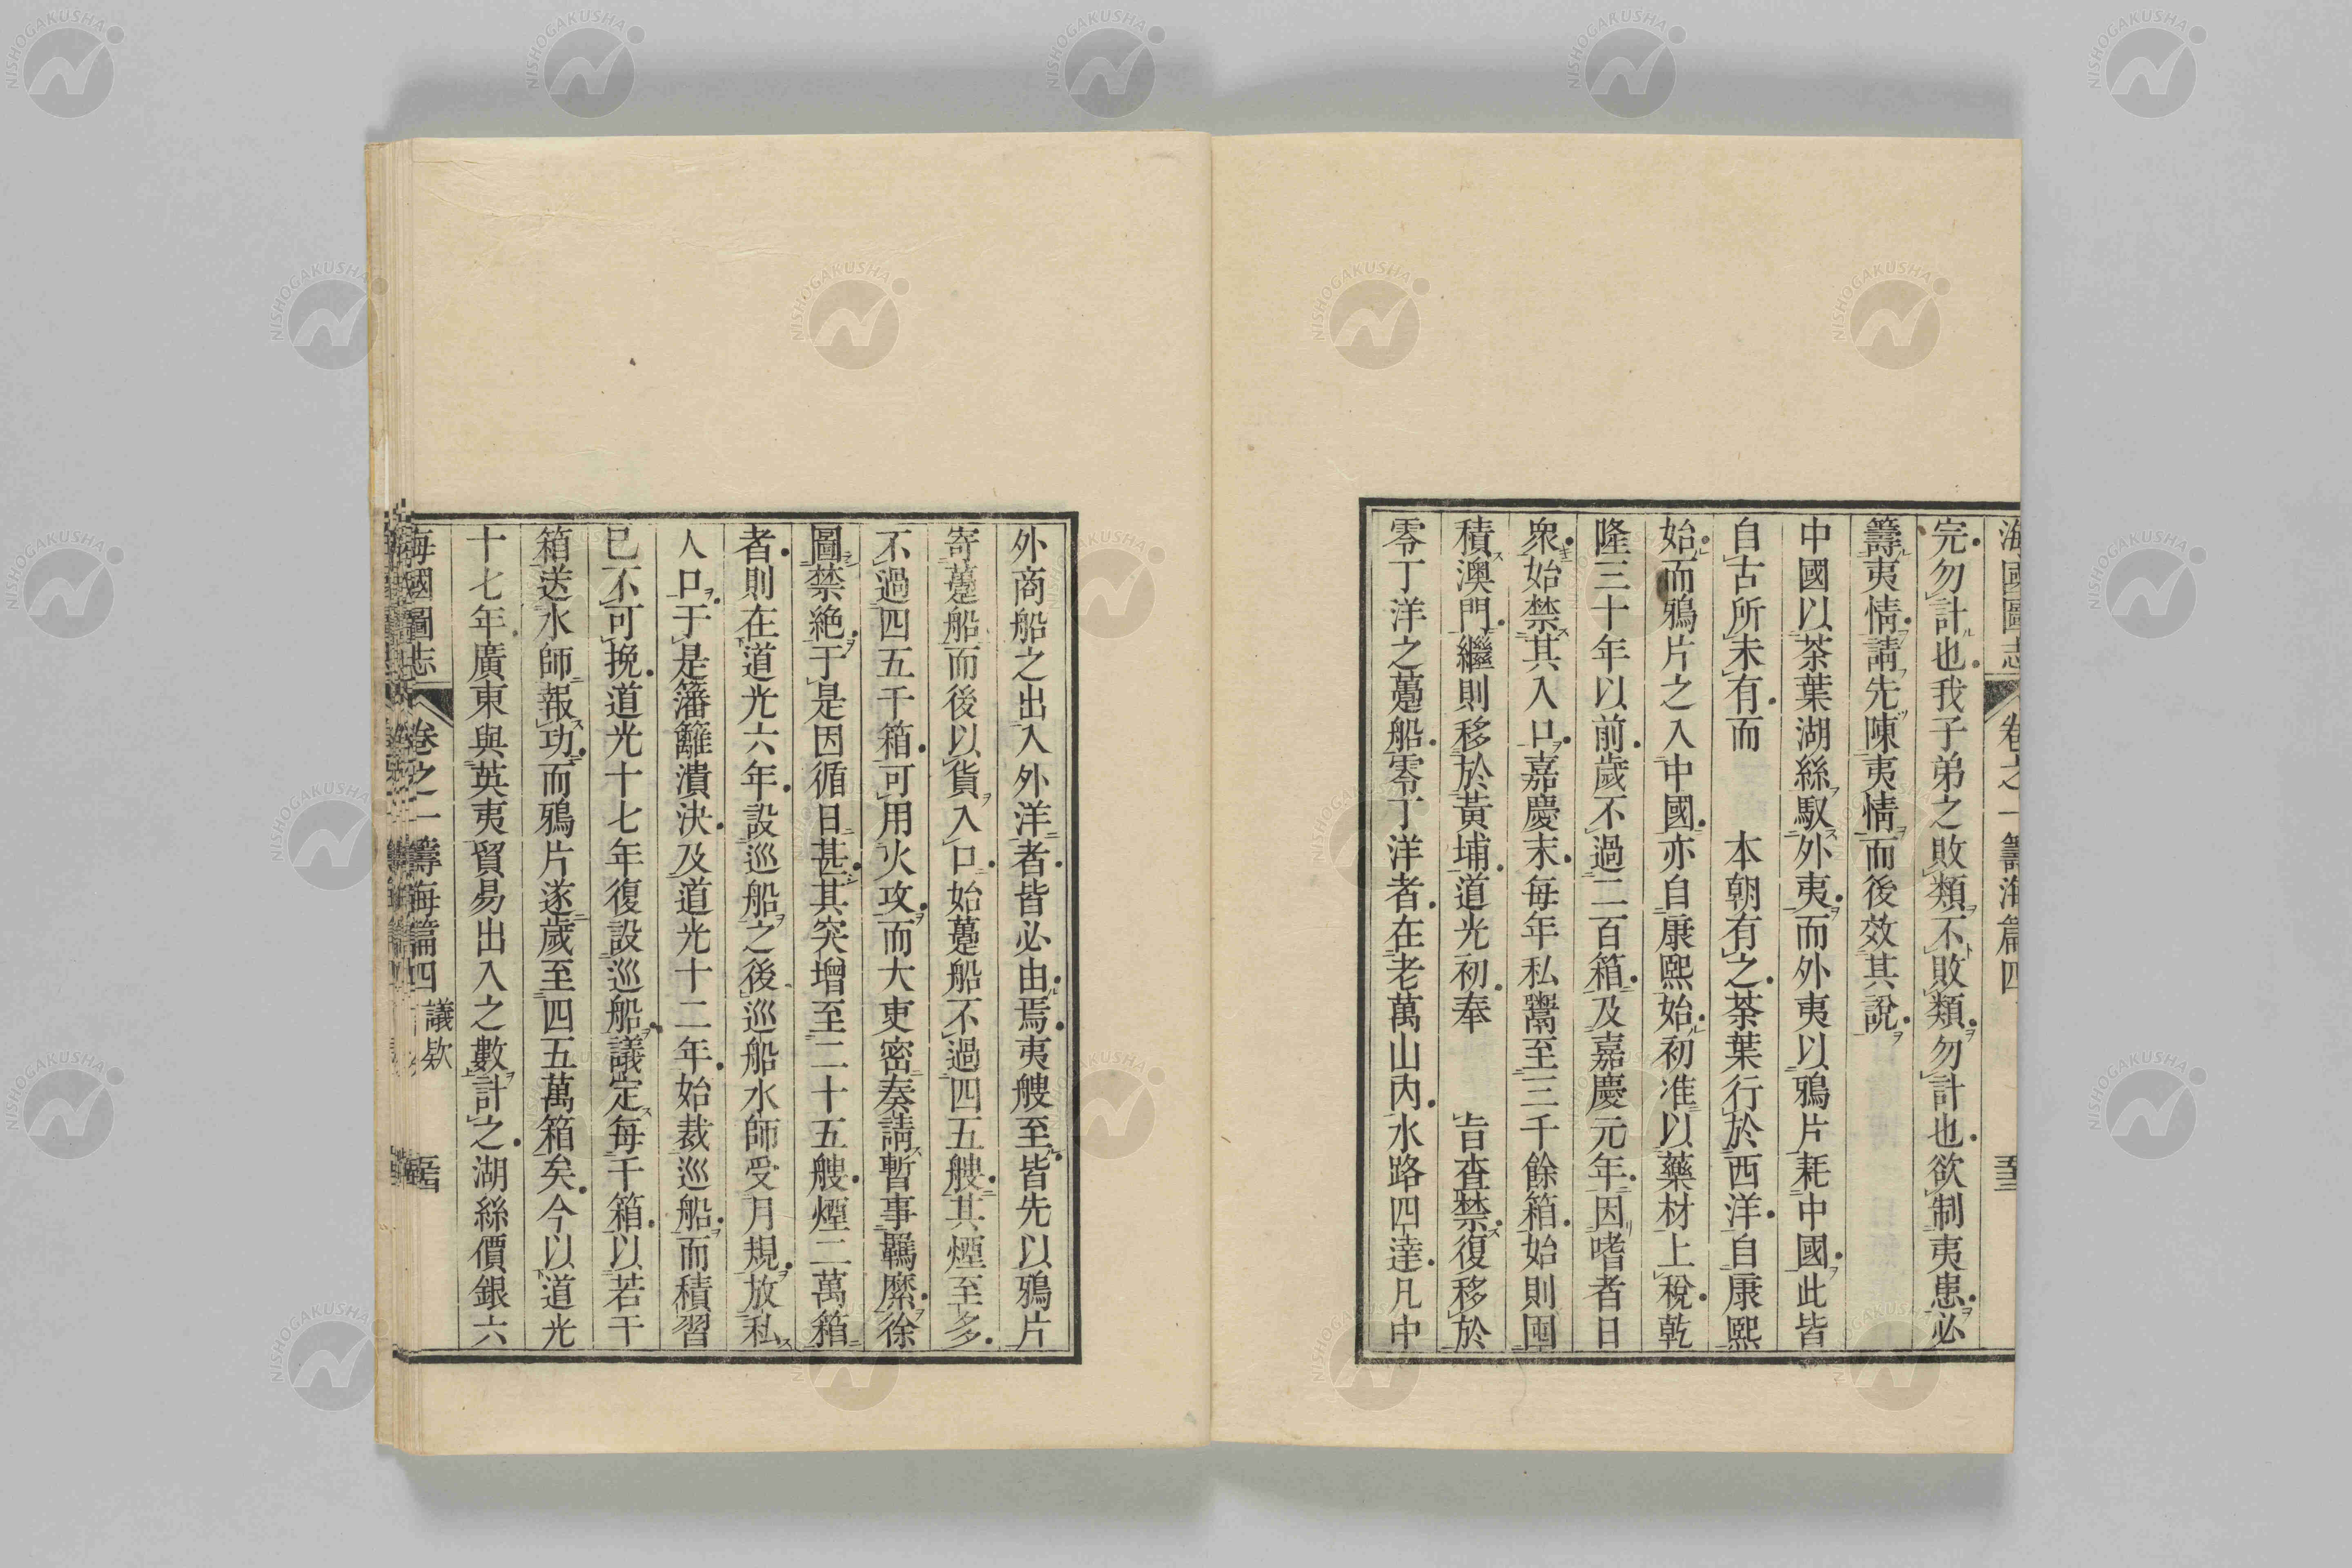 海國圖志 卷之一 籌海篇四 五十三
完勿計也我子弟之敗類不敗類勿計也欲制夷患必
籌夷情請先陳夷情而後效其說
中國以茶葉湖絲馭外夷而外夷以鴉片耗中國此皆
自古所未有而 本朝有之茶葉行於西洋自康熙
始而鴉片之入中國亦自康熙始初准以藥材上稅乾
隆三十年以前歲不過二百箱及嘉慶元年因嗜者日
衆始禁其入口嘉慶末每年私鬻至三千餘箱始則囤
積澳門繼則移於黃埔道光初奉 旨查禁復移於
零丁洋之躉船零丁洋者在老萬山內水路四達凡中
外商船之出入外洋者皆必由焉夷艘至皆先以鴉片
寄躉船而後以貨入口始躉船不過四五艘其煙至多
不過四五千箱可用火攻而大吏密奏請暫事羈縻徐
圖禁絕于是因循日甚其突增至二十五艘煙二萬箱
者則在道光六年設巡船之後巡船水師受月規放私
人口于是籓籬潰決及道光十二年始裁巡船而積習
已不可挽道光十七年復設巡船議定每千箱以若干
箱送水師報功而鴉片遂歲至四五萬箱矣今以道光
十七年廣東與英夷貿易出入之數計之湖絲價銀六
海國圖志 卷之一 籌海篇四 議款
NISHOGAKUSHA